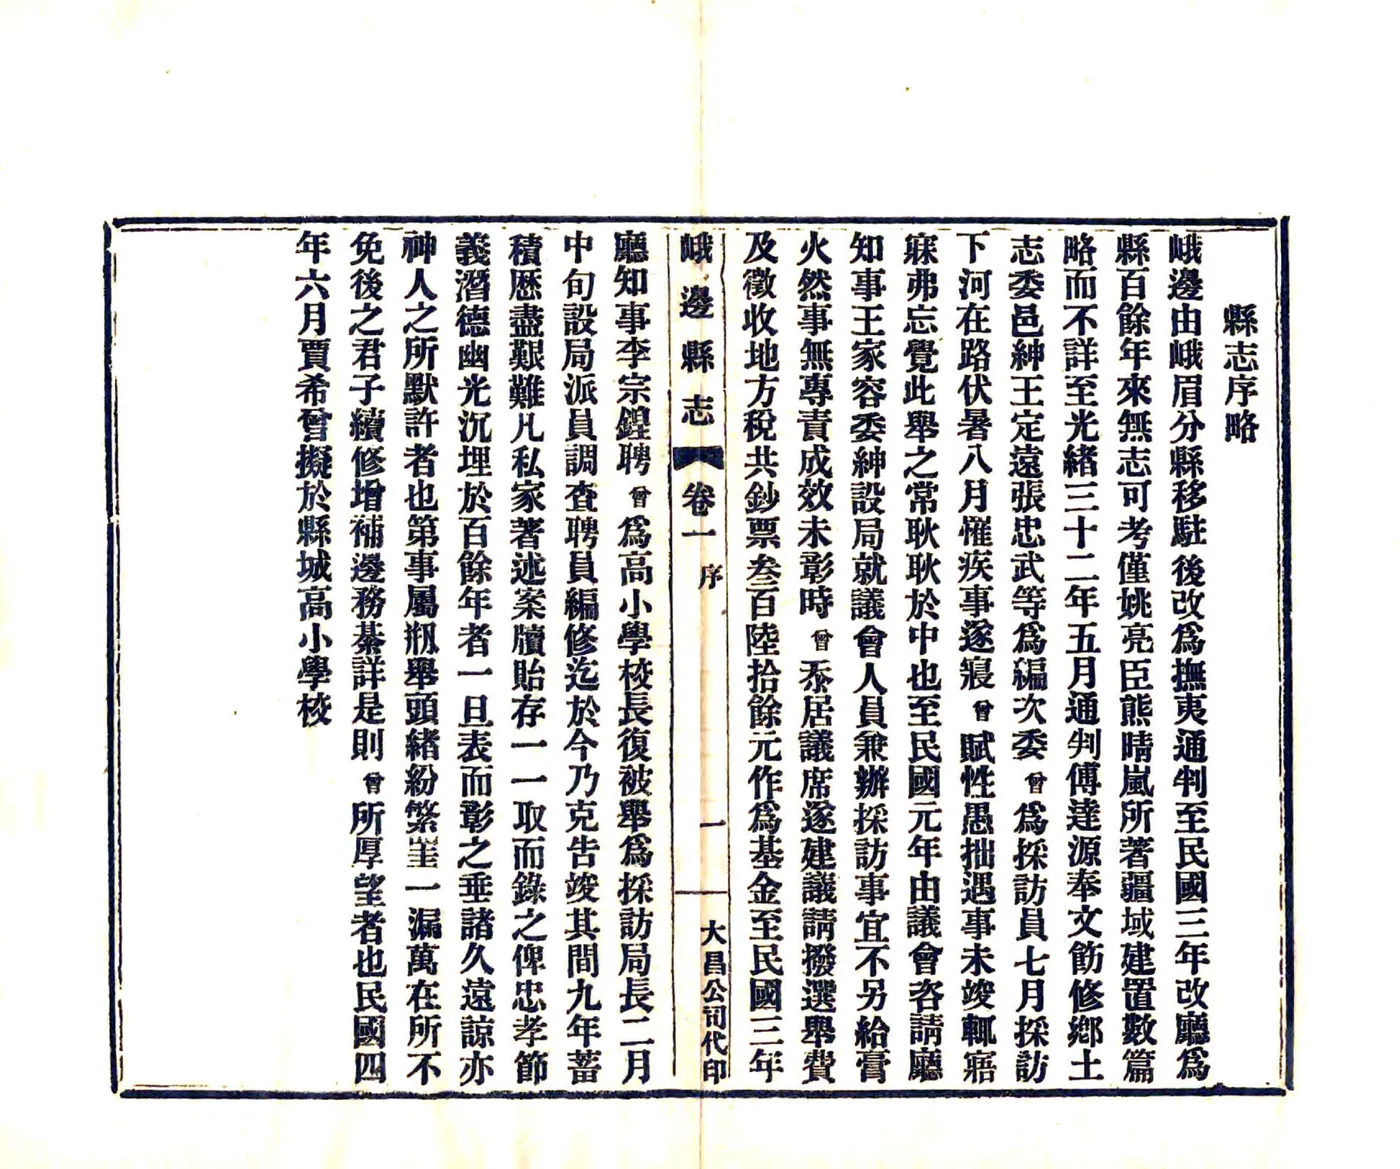 縣志序略
峨邊由峨眉分縣移駐後改爲撫夷通判至民國三年改廳爲
縣百餘年來無志可考僅姚亮臣熊晴嵐所著疆域建置數篇
略而不詳至光緒三十二年五月通判傅達源奉文飭修鄉土
志委邑紳王定遠張忠武等爲編次委曾爲採訪員七月採訪
下河在路伏暑八月罹疾事遂寢曾賦性愚拙遇事未竣輒寤
寐弗忘覺此舉之常耿耿於中也至民國元年由議會咨請廳
知事王家容委紳設局就議會人員兼辦採訪事宜不另給膏
火然事無專責成效未彰時曾忝居議席遂建議請撥選舉費
及徵收地方稅共鈔票叁百陸拾餘元作爲基金至民國三年
峨邊縣志 卷一 序 一 大昌公司代印
廳知事李宗鍠聘曾爲高小學校長復被舉爲採訪局長二月
中旬設局派員調查聘員編修迄於今乃克告竣其間九年蓄
積歷盡艱難凡私家著述案牘貽存一一取而錄之俾忠孝節
義潛德幽光沉埋於百餘年者一旦表而彰之垂諸久遠諒亦
神人之所默許者也第事屬剏舉頭緒紛繁罣一漏萬在所不
免後之君子續修增補邊務綦詳是則曾所厚望者也民國四
年六月賈希曾擬於縣城高小學校